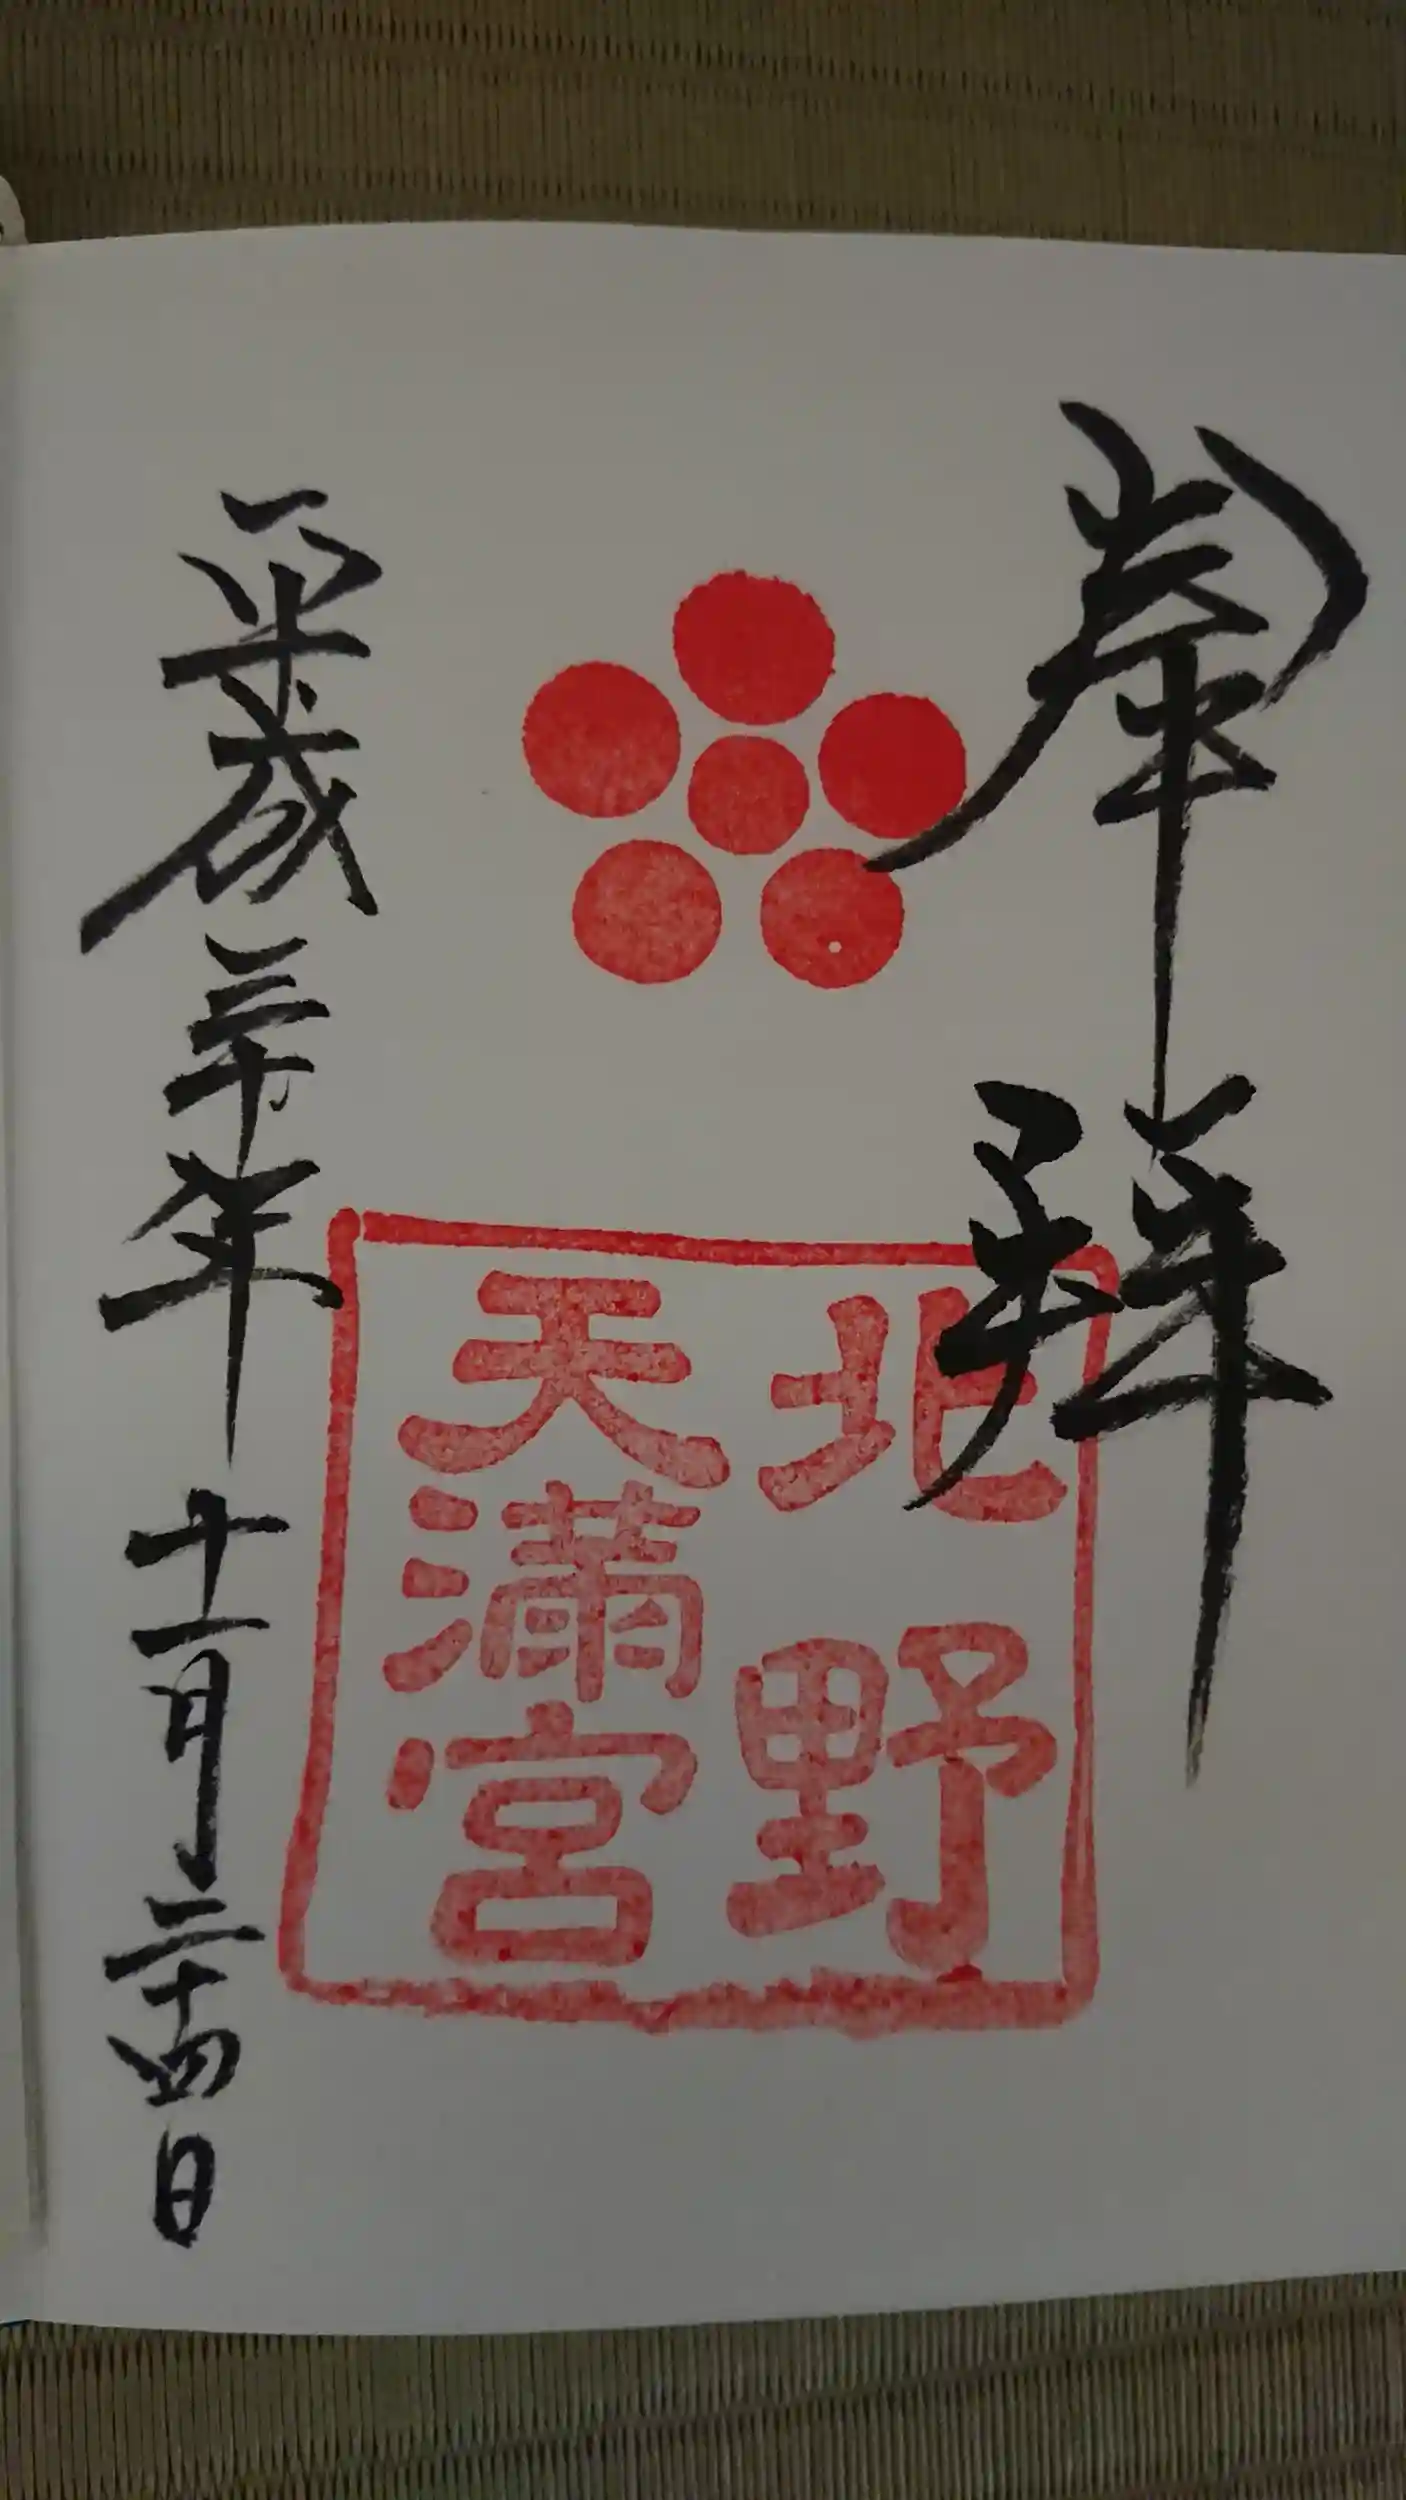 奉拜
北野
天満宮
平成三十年十一月二十四日